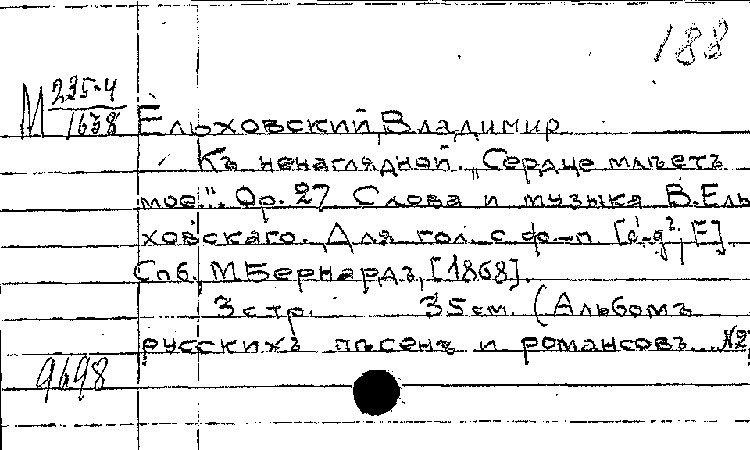 188
М 235-4/1638
Ельховский, Владимир
Къ ненаглядной. „Сердце млѣетъ
мое!". Ор. 27 Слова и музыка В. Ель-
ховскаго. Для гол. с ф-п. [d¹-g²; E].
Спб., М. Бернардъ, [1868].
3 стр. 35 см. (Альбомъ
русскихъ пѣсенъ и романсовъ. №2
9698